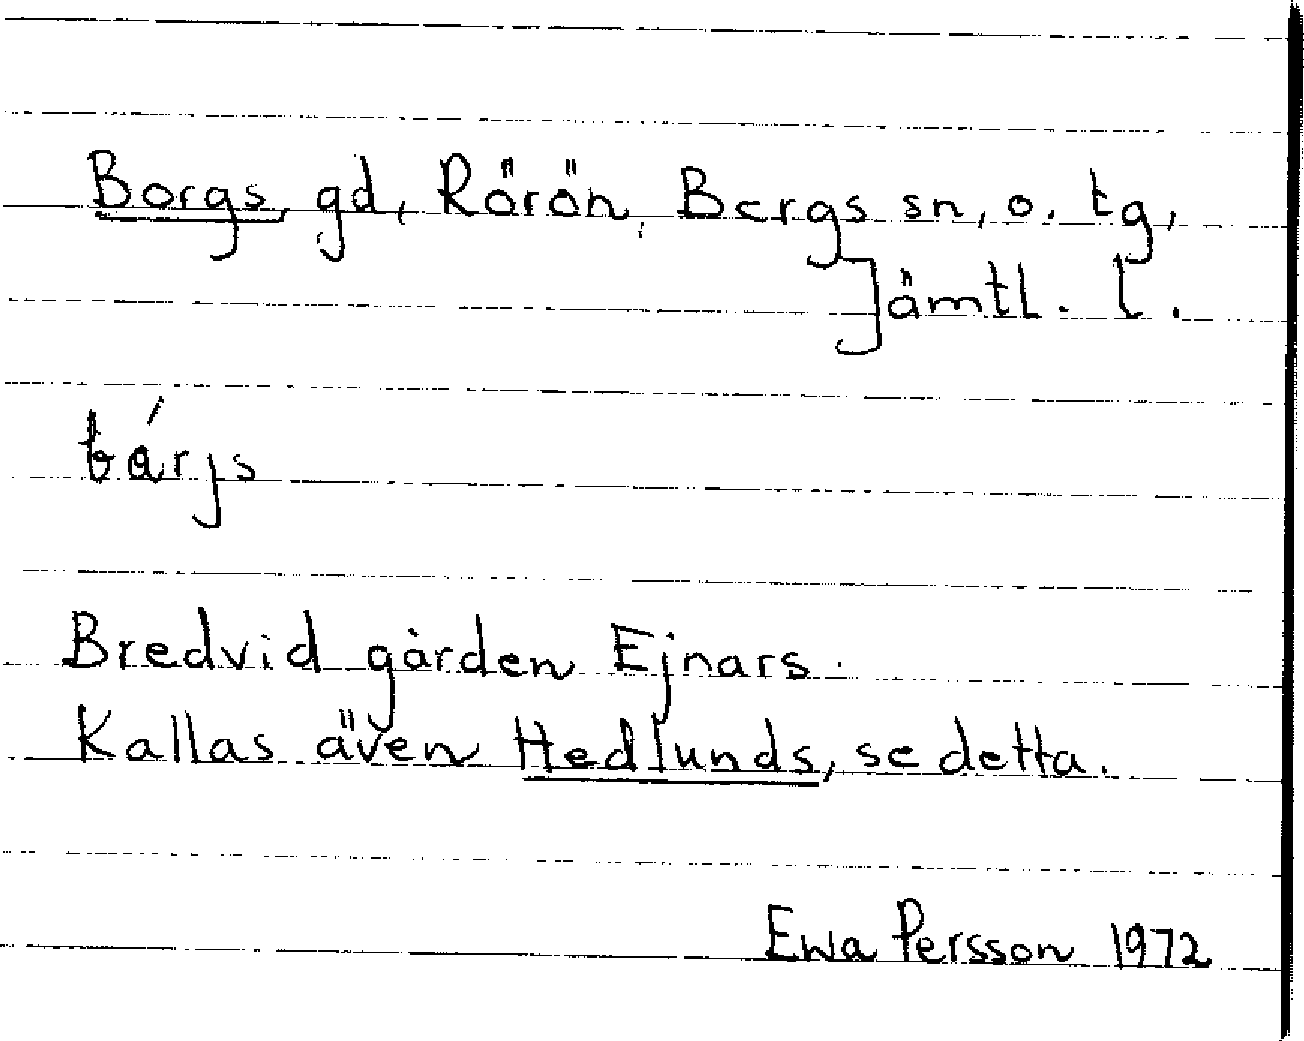 Borgs, gd, Rörön, Bergs sn, o. tg,
Jämtl. l.
bárjs
Bredvid gården Ejnars.
Kallas även Hedlunds, se detta.
Ewa Persson 1972